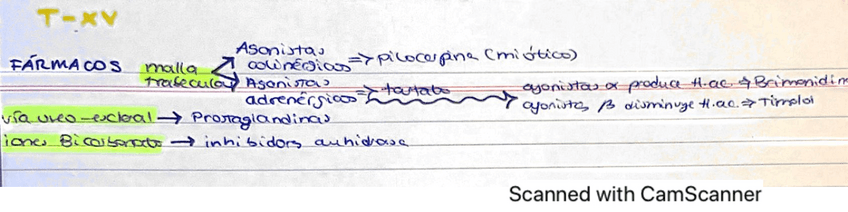 T-XV
Agonistas
colinérgicos => pilocarpina (miótico)
FÁRMACOS malla
trabecular Agonistas
adrenérgicos => tartato
agonistas α produce H.ac. => Brimonidin
agonistas β disminuye H.ac. => Timolol
vía uveo-escleral → Prostaglandinas
iones Bicarbonato → inhibidors anhidrasa
Scanned with CamScanner